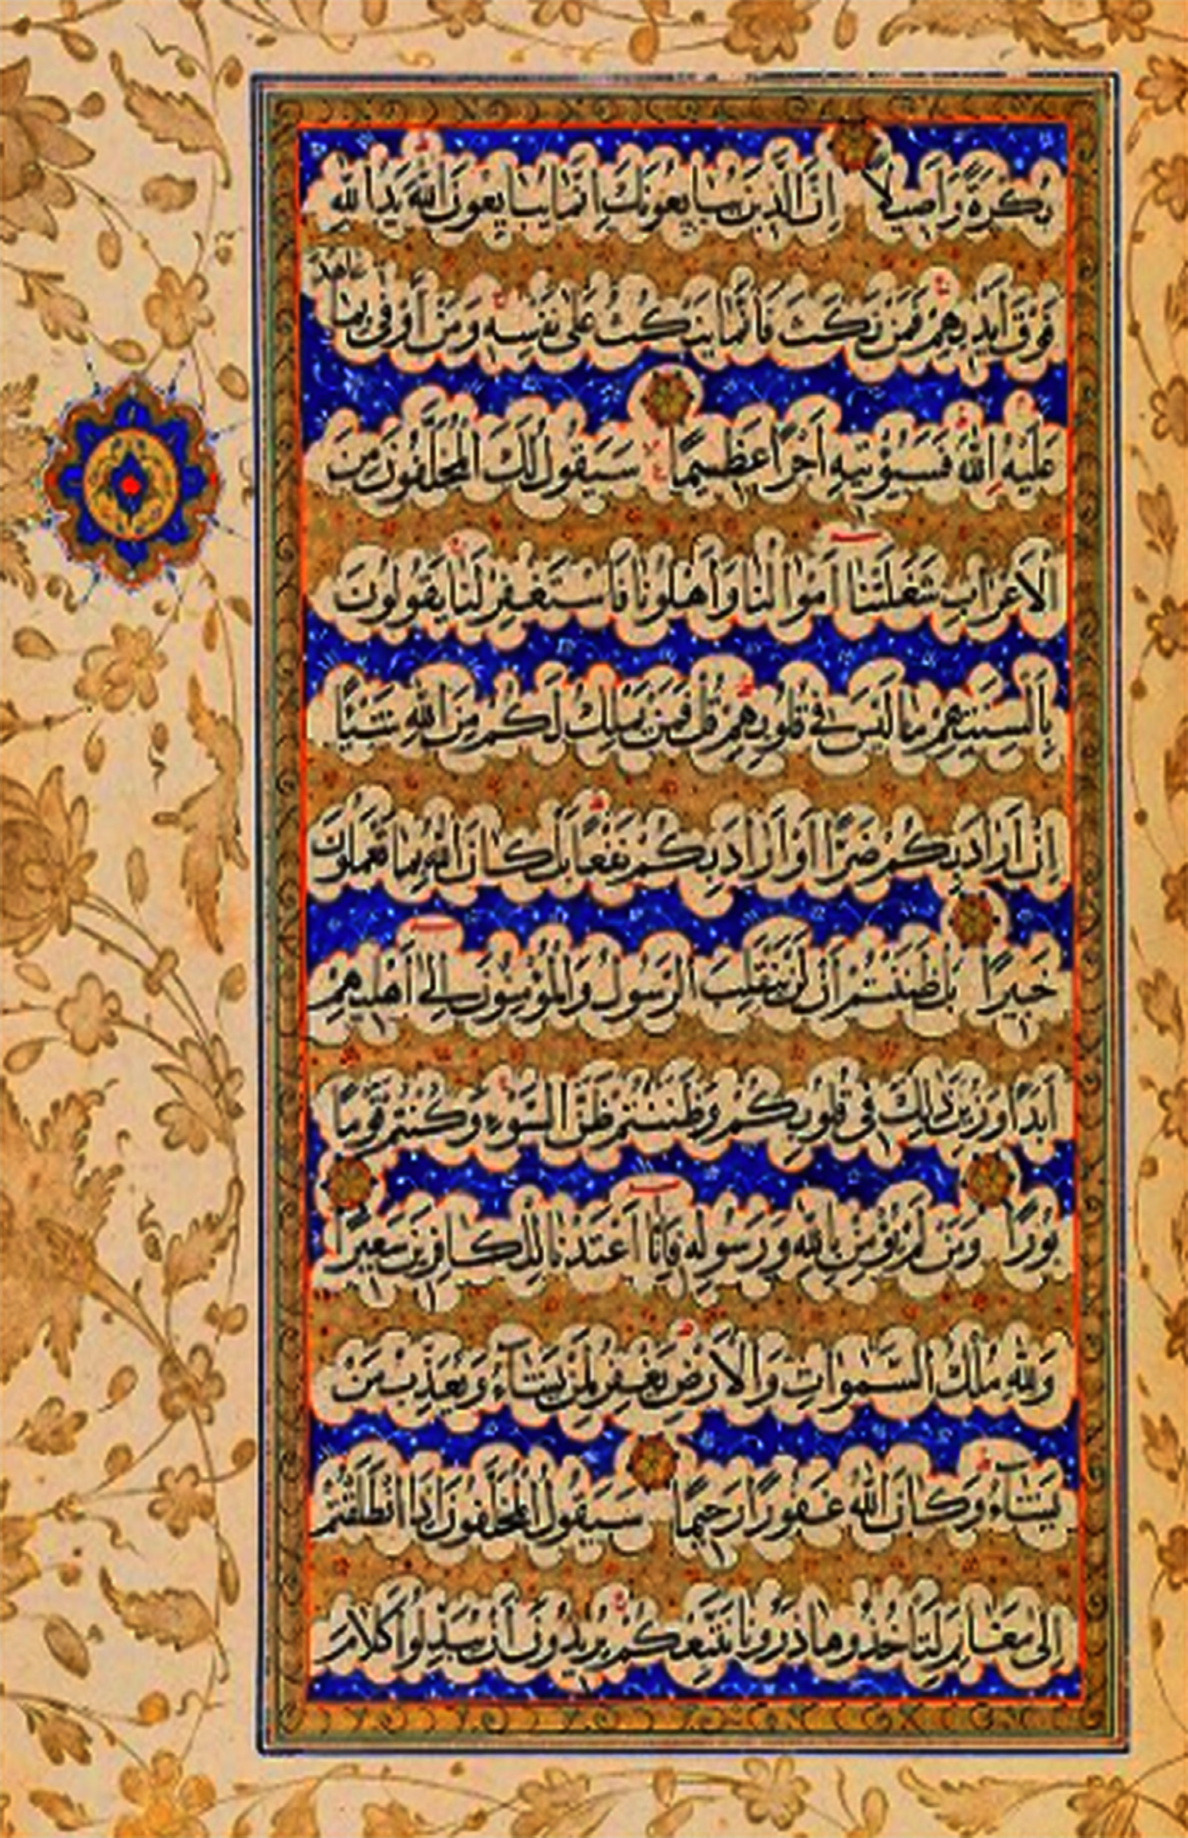 بُكْرَةً وَأَصِيلًا إِنَّ الَّذِينَ يُبَايِعُونَكَ إِنَّمَا يُبَايِعُونَ اللَّهَ يَدُ اللَّهِ
فَوْقَ أَيْدِيهِمْ فَمَنْ نَكَثَ فَإِنَّمَا يَنْكُثُ عَلَى نَفْسِهِ وَمَنْ أَوْفَى بِمَا عَاهَدَ
عَلَيْهُ اللَّهَ فَسَيُؤْتِيهِ أَجْرًا عَظِيمًا سَيَقُولُ لَكَ الْمُخَلَّفُونَ مِنَ
الْأَعْرَابِ شَغَلَتْنَا أَمْوَالُنَا وَأَهْلُونَا فَاسْتَغْفِرْ لَنَا يَقُولُونَ
بِأَلْسِنَتِهِمْ مَا لَيْسَ فِي قُلُوبِهِمْ قُلْ فَمَنْ يَمْلِكُ لَكُمْ مِنَ اللَّهِ شَيْئًا
إِنْ أَرَادَ بِكُمْ ضَرًّا أَوْ أَرَادَ بِكُمْ نَفْعًا بَلْ كَانَ اللَّهُ بِمَا تَعْمَلُونَ
خَبِيرًا بَلْ ظَنَنْتُمْ أَنْ لَنْ يَنْقَلِبَ الرَّسُولُ وَالْمُؤْمِنُونَ إِلَى أَهْلِيهِمْ
أَبَدًا وَزُيِّنَ ذَلِكَ فِي قُلُوبِكُمْ وَظَنَنْتُمْ ظَنَّ السَّوْءِ وَكُنْتُمْ قَوْمًا
بُورًا وَمَنْ لَمْ يُؤْمِنْ بِاللَّهِ وَرَسُولِهِ فَإِنَّا أَعْتَدْنَا لِلْكَافِرِينَ سَعِيرًا
وَلِلَّهِ مُلْكُ السَّمَوَاتِ وَالْأَرْضِ يَغْفِرُ لِمَنْ يَشَاءُ وَيُعَذِّبُ مَنْ
يَشَاءُ وَكَانَ اللَّهُ غَفُورًا رَحِيمًا سَيَقُولُ الْمُخَلَّفُونَ إِذَا انْطَلَقْتُمْ
إِلَى مَغَانِمَ لِتَأْخُذُوهَا ذَرُونَا نَتَّبِعْكُمْ يُرِيدُونَ أَنْ يُبَدِّلُوا كَلَامَ